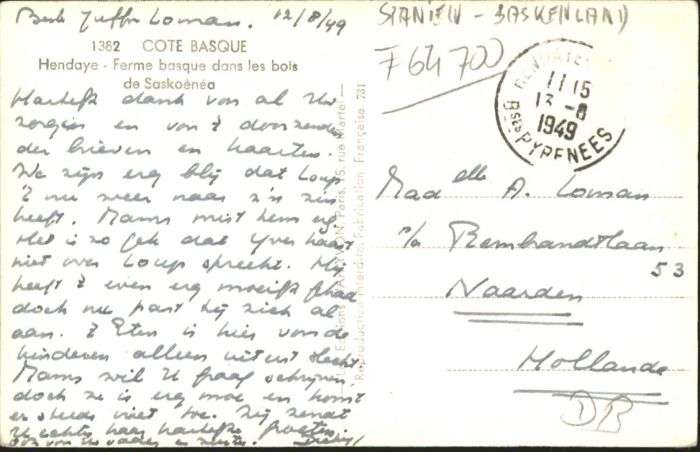 Beste Juffr Loman. 12/8/49
SPANIEN - BASKENLAND
F 64 700
1382 COTE BASQUE
Hendaye - Ferme basque dans les bois
de Saskoénéa
Hartelijk dank voor al Uw
zorgen en voor 't doorzenden
der brieven en kaarten.
We zijn erg blij dat Loup
't nu weer naar z'n zin
heeft. Mams mist hem erg
Het is zo gek dat Yves haast
niet over Loup spreekt. Hij
heeft 't even erg moeilijk gehad
doch nu past hij zich al
aan. 't Eten is hier voor de
kinderen alleen uit en slecht
Mams wil U graag schrijven
doch ze is erg moe en komt
er steeds niet toe. Zij zendt
U echter haar hartelijke groeten
ook van Uw
Paris, 15, rue Martel
Reproduction Interdite, Fabrication Française 781
HENDAYE
11 15
13 - 8
1949
Bses PYRENEES
Madelle A. Loman
p/a Rembrandtlaan
53
Naarden
Hollande
DB